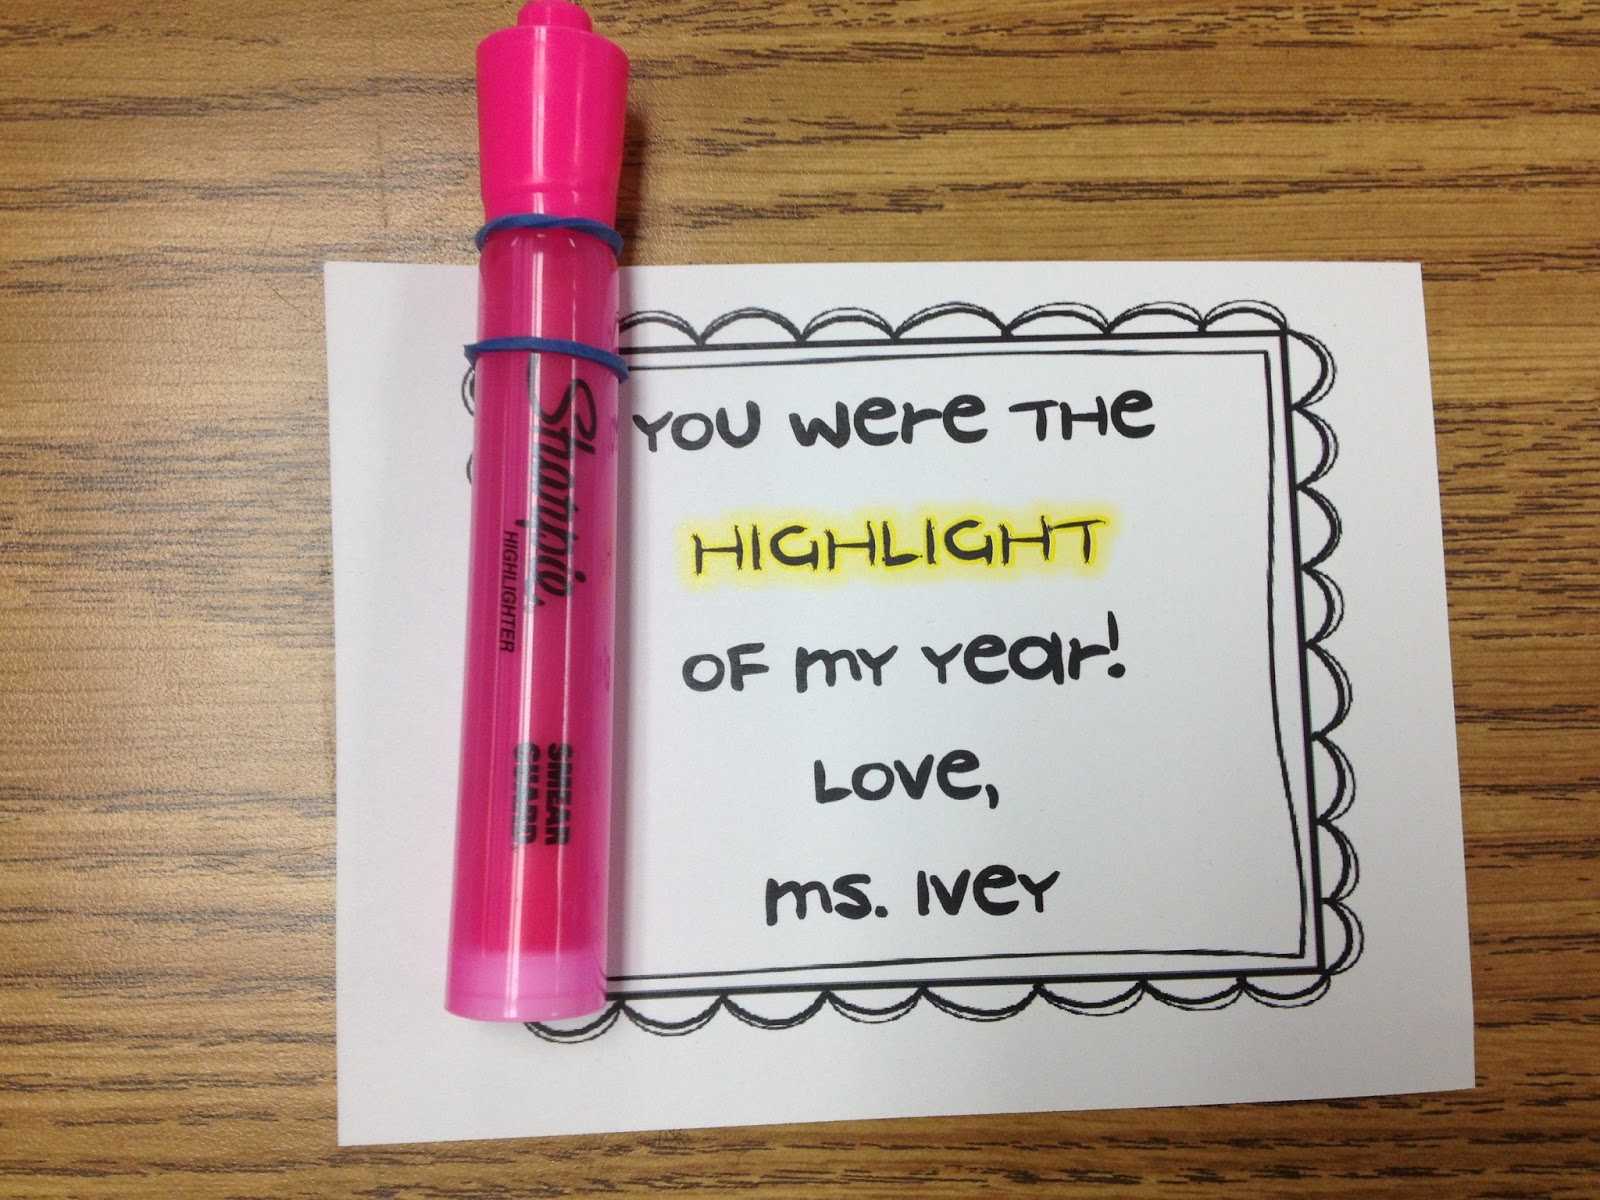 YOU were THE
HIGHLIGHT
OF my year!
Love,
ms. Ivey
Sharpie
HIGHLIGHTER
SMEAR
GUARD